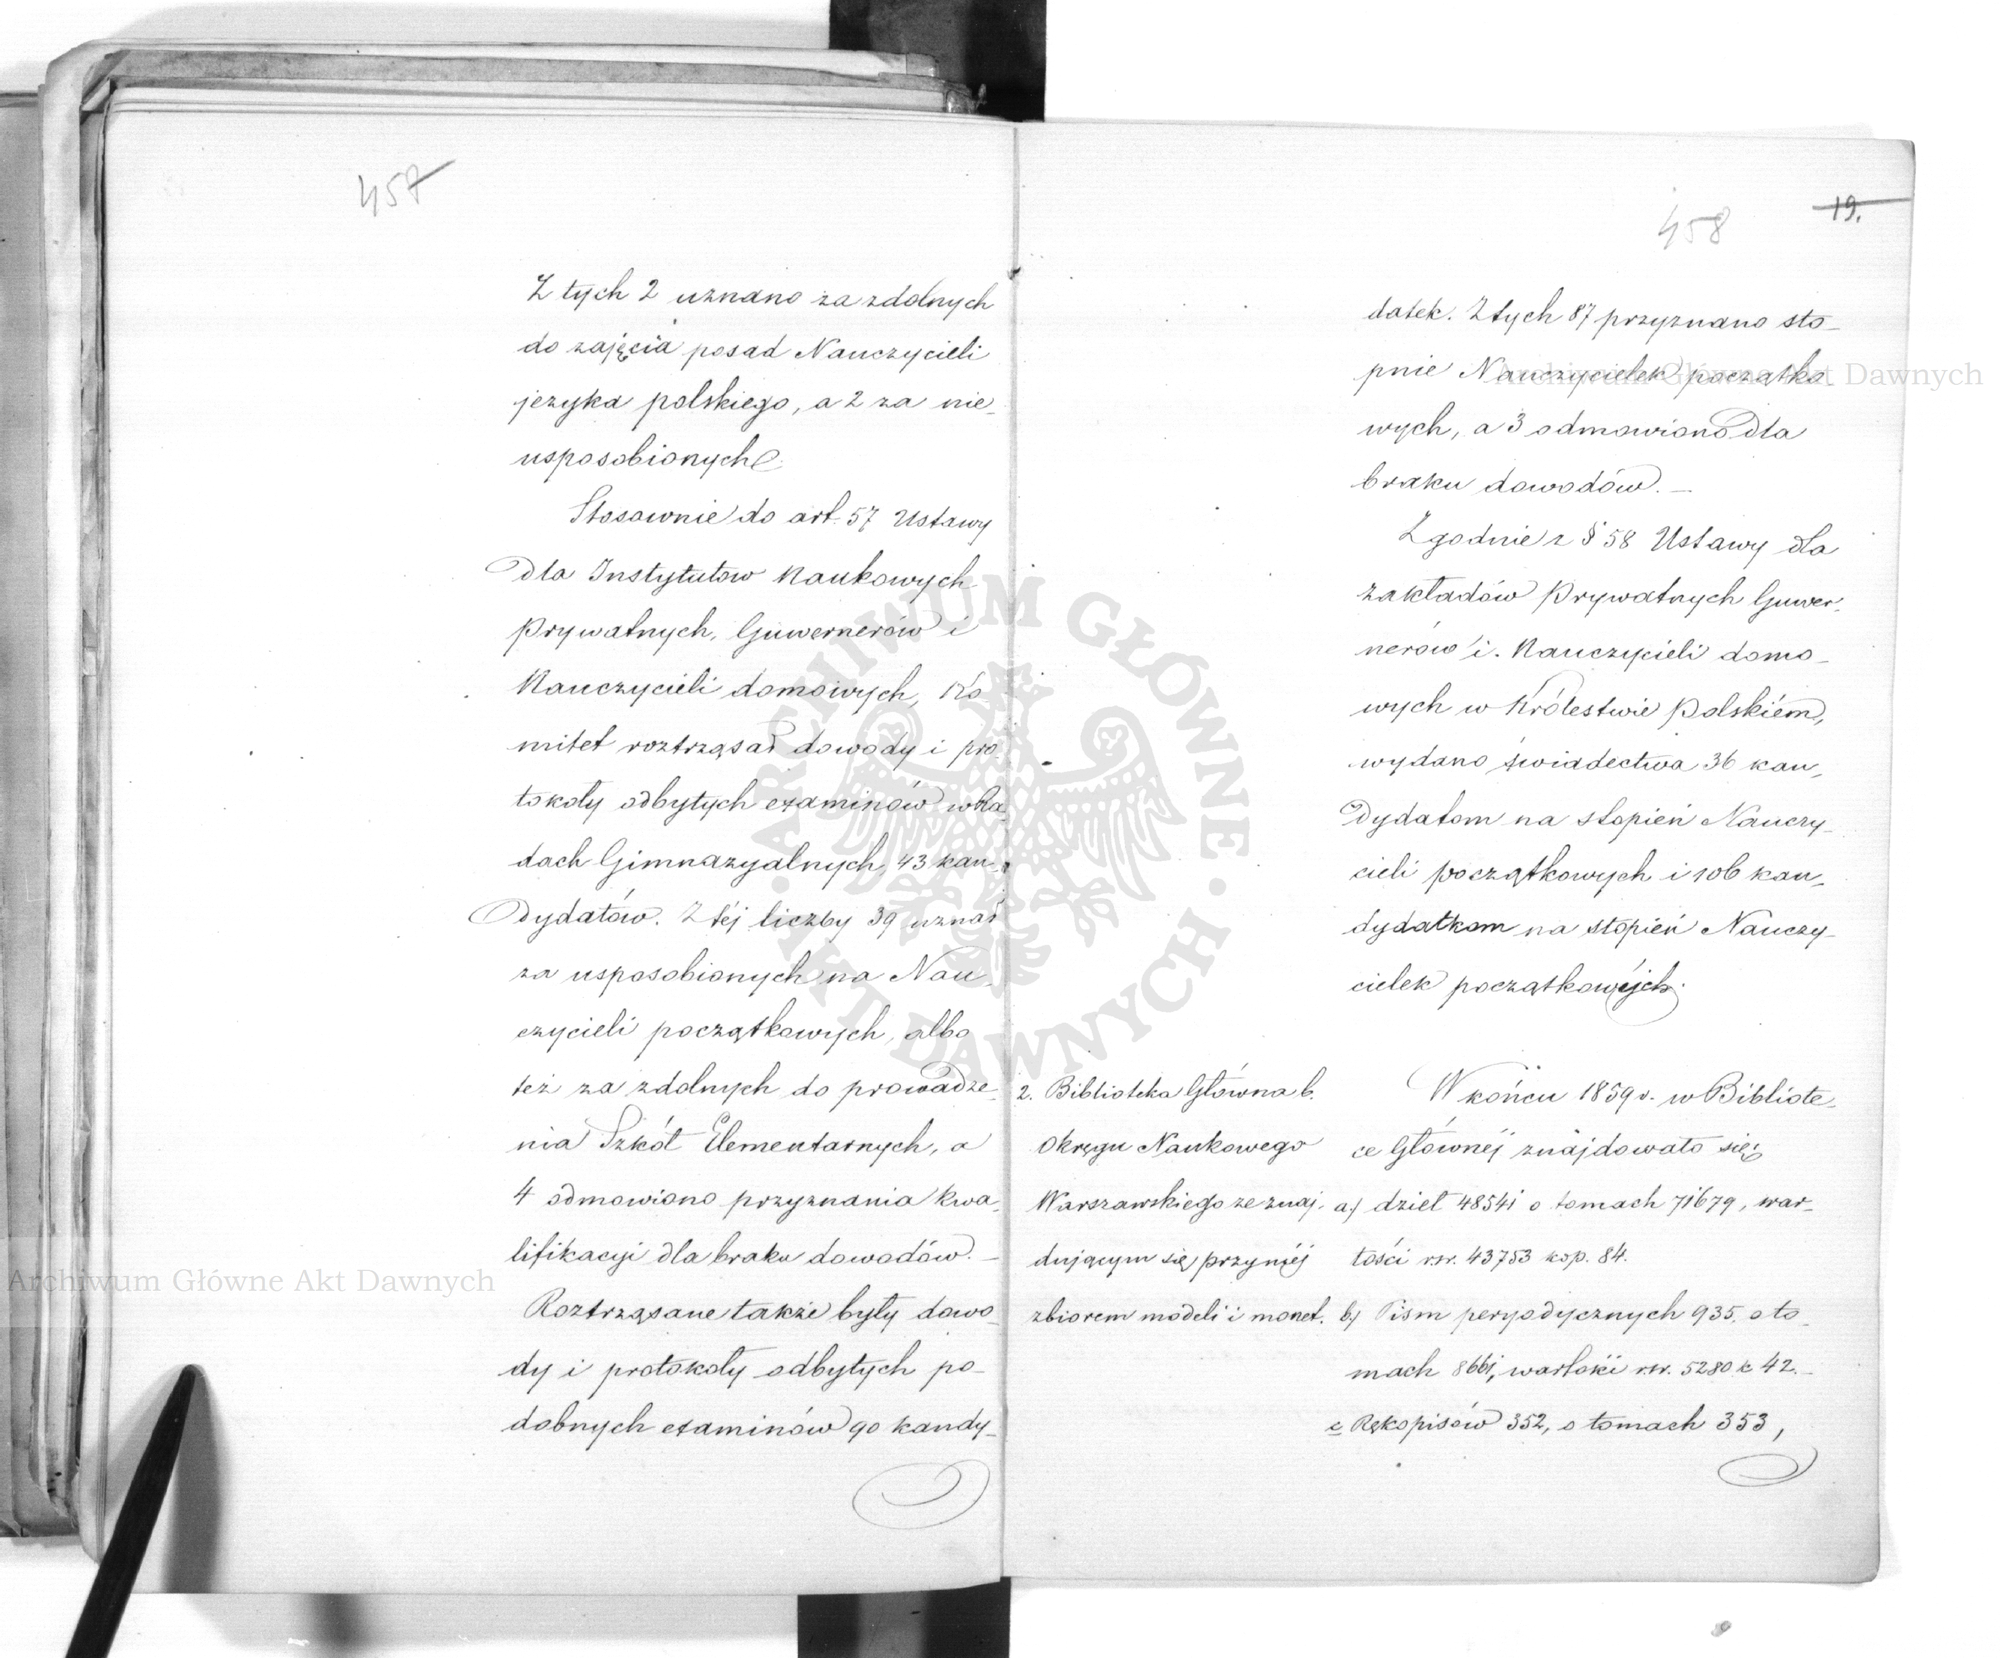 457
Z tych 2 uznano za zdolnych
do zajęcia posad Nauczycieli
języka polskiego, a 2 za nie-
usposobionych
Stosownie do art. 57 Ustawy
dla Instytutow Naukowych
prywatnych, Guwernerów i
Nauczycieli domowych, Ko-
mitet roztrząsał dowody i pro-
tokoły odbytych examinów w Ra-
dach Gimnazyalnych, 43 kan-
dydatów. Z téj liczby 39 uznał
za usposobionych na Nau-
czycieli początkowych, albo
też za zdolnych do prowadze-
nia Szkół Elementarnych, a
4 odmowiono przyznania kwa-
lifikacyi dla braku dowodów. —
Roztrząsane także były dowo-
dy i protokoły odbytych po-
dobnych examinów 90 kandy-
458
19.
datek. Z tych 87 przyznano sto-
pnie Nauczycielek początko-
wych, a 3 odmowiono dla
braku dowodów. —
Zgodnie z § 58 Ustawy dla
zakładów prywatnych Guwer-
nerów i Nauczycieli domo-
wych w Królestwie Polskiém,
wydano świadectwa 36 kan-
dydatom na stopień Nauczy-
cieli początkowych i 106 kan-
dydatkom na stopień Nauczy-
cielek początkowych.
2. Biblioteka Główna b.
Okręgu Naukowego
Warszawskiego ze znaj-
dującym się przy niéj
zbiorem modeli i monet.
W końcu 1859 r. w Bibliote-
ce Głównéj znajdowało się:
a) dzieł 48541 o tomach 71679, war-
tości rsr. 43753 kop. 84.
b) Pism peryodycznych 935, o to-
mach 8661, wartości rsr. 5280 k 42. —
c Rękopisów 352, o tomach 353,
Archiwum Główne Akt Dawnych
Archiwum Główne Akt Dawnych
ARCHIWUM GŁÓWNE · AKT DAWNYCH ·